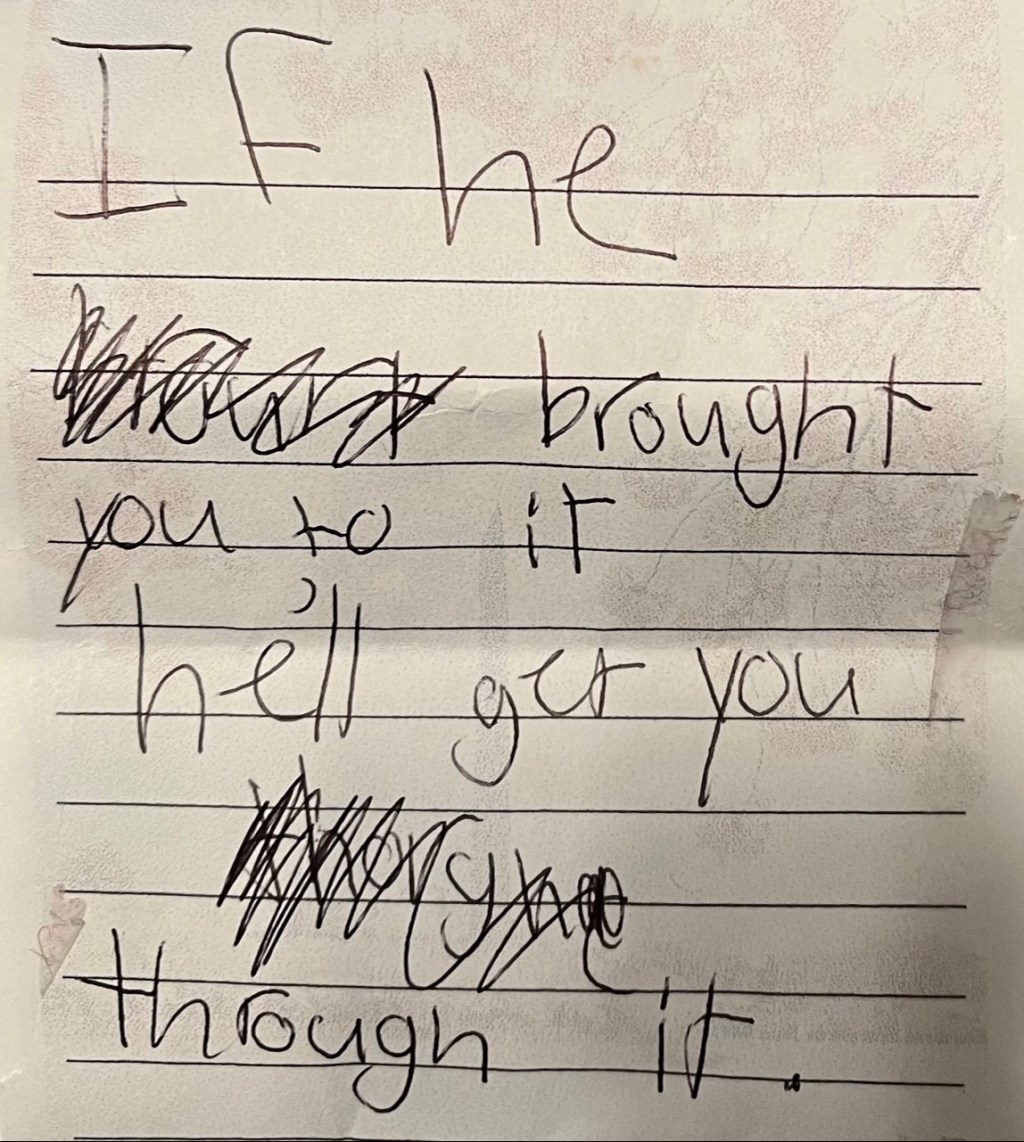 If he
brought
you to it
he'll get you
through it.